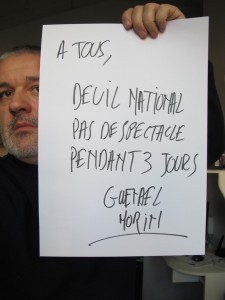 A TOUS,
DEUIL NATIONAL
PAS DE SPECTACLE
PENDANT 3 JOURS
GWENAEL
MORIN